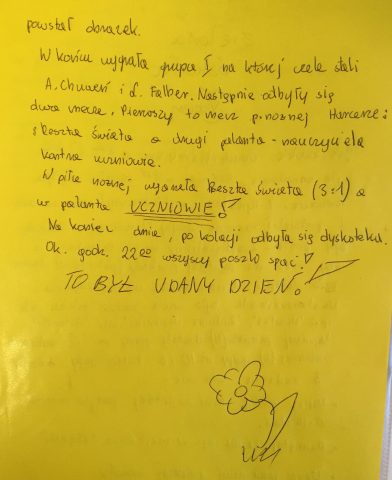 powstał obrazek.
W końcu wygrała grupa I na której czele stali
A. Chuweń i J. Falber. Następnie odbyły się
dwa mecze. Pierwszy to mecz p. nożnej Harcerze:
i Reszta świata a drugi palanta - nauczyciele
kontra uczniowie.
W piłce nożnej wygrała Reszta świata (3:1) a
w palanta UCZNIOWIE!
Na koniec dnia, po kolacji odbyła się dyskoteka.
Ok. godz. 22⁰⁰ wszyscy poszło spać!
TO BYŁ UDANY DZIEŃ!